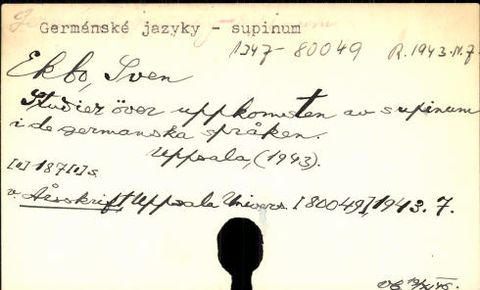 Germánské jazyky - supinum
1347- 80049 R.1943.N.7.
Ekbo, Sven
Studier över uppkomsten av supinum
i de germanska språken.
Uppsala, (1943).
[1] 187 [1] s.
v. Årsskrift, Uppsala Univers. [80049], 1943. 7.